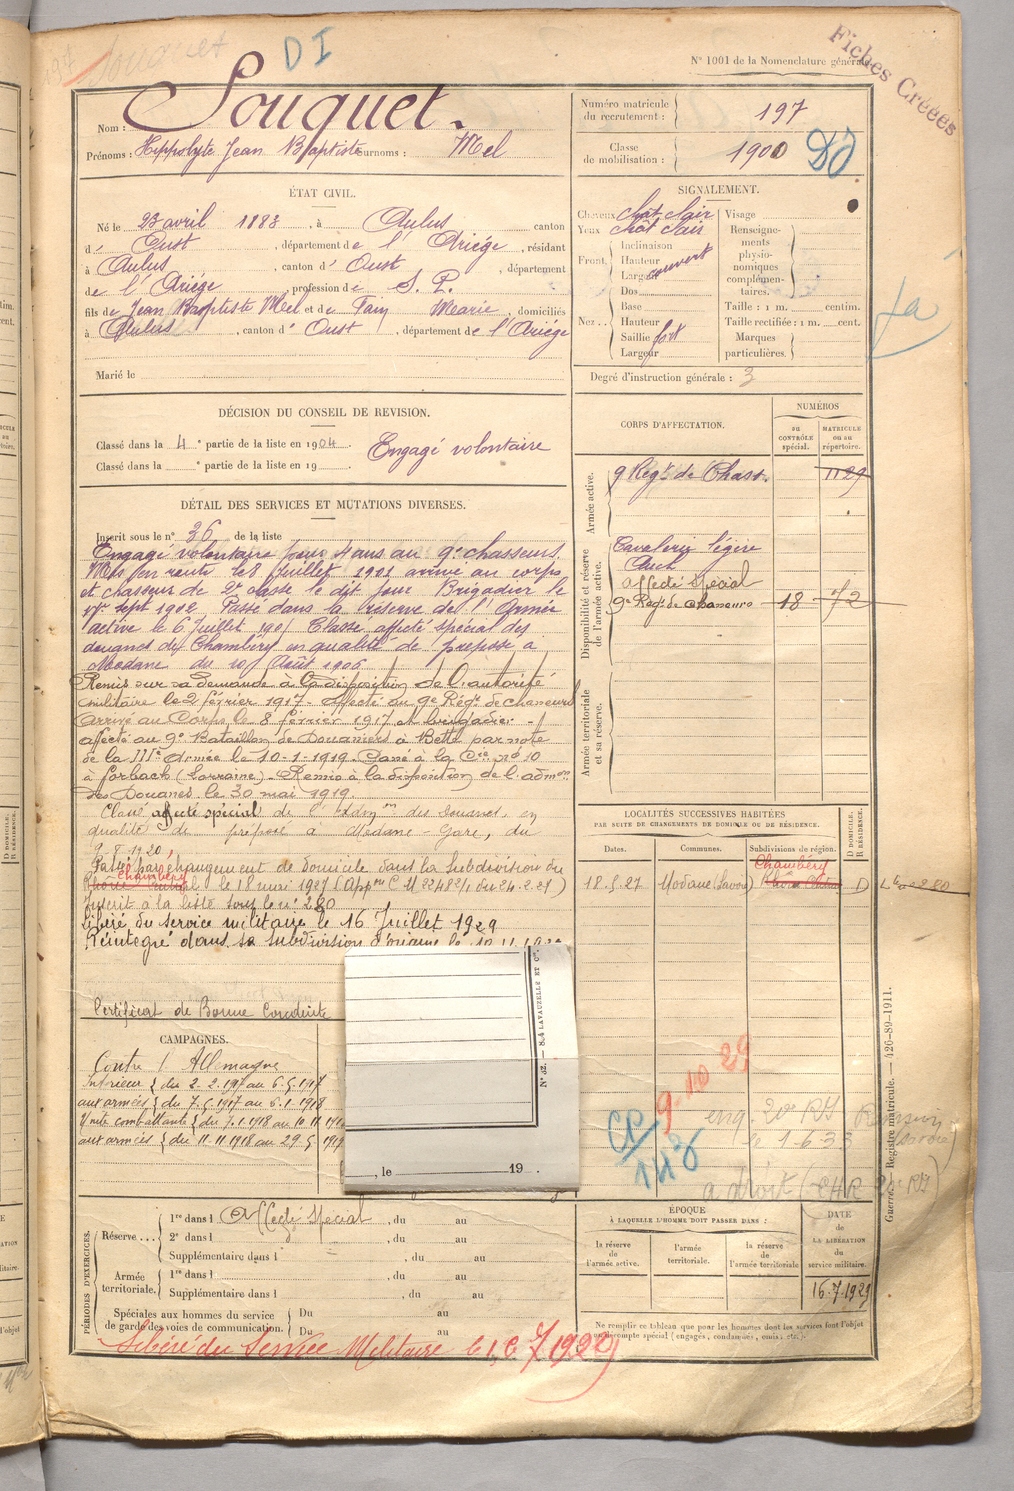 197 Souquet
D I
N° 1001 de la Nomenclature générale.
Fiches Créées
Nom : Souquet.
Prénoms : Hippolyte Jean Baptiste Surnoms : Mel
Numéro matricule du recrutement : 197
Classe de mobilisation : 1900
ÉTAT CIVIL.
Né le 23 avril 1883, à Aulus canton
d' Oust, département de l'Ariége, résidant
à Aulus, canton d' Oust, département
de l'Ariége, profession de S. P.
fils de Jean Baptiste Mel et de Fain Marie, domiciliés
à Aulus, canton d' Oust, département de l'Ariége
Marié le
SIGNALEMENT.
Cheveux chât clair
Yeux chât clair
Front. Inclinaison
Hauteur
Largeur
couvert
Nez.. Dos
Base
Hauteur
Saillie fort
Largeur
Visage
Renseignements physionomiques complémentaires.
Taille : 1 m. centim.
Taille rectifiée : 1 m. cent.
Marques particulières.
Degré d'instruction générale : 3
DÉCISION DU CONSEIL DE REVISION.
Classé dans la 4 e partie de la liste en 1904.
Classé dans la e partie de la liste en 19
Engagé volontaire
DÉTAIL DES SERVICES ET MUTATIONS DIVERSES.
Inscrit sous le n° 36 de la liste
Engagé volontaire pour 4 ans au 9e chasseurs.
Mis en route le 8 Juillet 1901 arrivé au corps
et chasseur de 2e classe le dit jour Brigadier le
sept 1902 Passé dans la réserve de l'Armée
active le 6 Juillet 190 Classé affecté spécial des
douanes de Chambéry en qualité de préposé à
Modane du 10 Août 1906
Remis sur sa demande à la disposition de l'autorité
militaire le 2 février 1917. Affecté au 9e Régt de chasseurs
Arrivé au Corps le 8 février 1917 et brigadier
affecté au 9e Bataillon de Douaniers à par note
de la IIIe Armée le 10-1-1919. Passé à la Cie n° 10
à Forbach (Lorraine). Remis à la disposition de l'admon
des Douanes le 30 mai 1919.
Classé affecté spécial de l'Admon des Douanes, en
qualité de préposé à Modane-Gare, du
9.8.1920
Passé par changement de domicile dans la Subdivision du
Rhône central Chambéry le 18 mai 1927
Inscrit à la liste sous le n° 280
Libéré du service militaire le 16 Juillet 1929
Réintégré dans sa subdivision d'origine le
Certificat de Bonne Conduite
CORPS D'AFFECTATION.
NUMÉROS
au CONTRÔLE spécial.
MATRICULE ou au répertoire.
Armée active.
9 Régt de Chass. 1129
Disponibilité et réserve de l'armée active.
Cavalerie légère
Auch
affecté spécial
9e Régt de chasseurs 18 72
Armée territoriale et sa réserve.
LOCALITÉS SUCCESSIVES HABITÉES
PAR SUITE DE CHANGEMENTS DE DOMICILE OU DE RÉSIDENCE.
Dates. Communes. Subdivisions de région. D DOMICILE. R RÉSIDENCE.
18.5.27 Modane (Savoie) Chambéry Rhône Central D
CAMPAGNES.
Contre l'Allemagne
Intérieur { du 2.2.1917 au 6.5.1917
aux armées { du 7.5.1917 au 6.1.1918
Unité combattante { du 7.1.1918 au 10.11.1918
aux armées { du 11.11.1918 au 29.5.1919
N° 32. — S.-A LAVAUZELLE ET Cie.
, le 19 .
9.10 29
CP/
1-6-33
Guerre. — Registre matricule. — 426-89-1911.
PÉRIODES D'EXERCICES.
Réserve... 1re dans l Affecté Spécial, du au
2e dans l , du au
Supplémentaire dans l , du au
Armée territoriale. 1re dans l , du au
Supplémentaire dans l , du au
Spéciales aux hommes du service de garde des voies de communication. Du au
Du au
ÉPOQUE
À LAQUELLE L'HOMME DOIT PASSER DANS :
la réserve de l'armée active.
l'armée territoriale.
la réserve de l'armée territoriale
DATE de LA LIBÉRATION du service militaire.
16.7.1929
Ne remplir ce tableau que pour les hommes dont les services font l'objet
d'un décompte spécial (engagés, condamnés, omis, etc.).
Libéré du Service Militaire le 16 7 1929